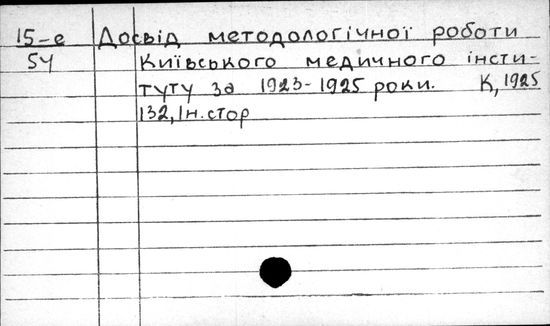 15-е Досвід методологічної роботи
54 Київського медичного інсти-
туту за 1923-1925 роки. К, 1925
132, 1н. стор